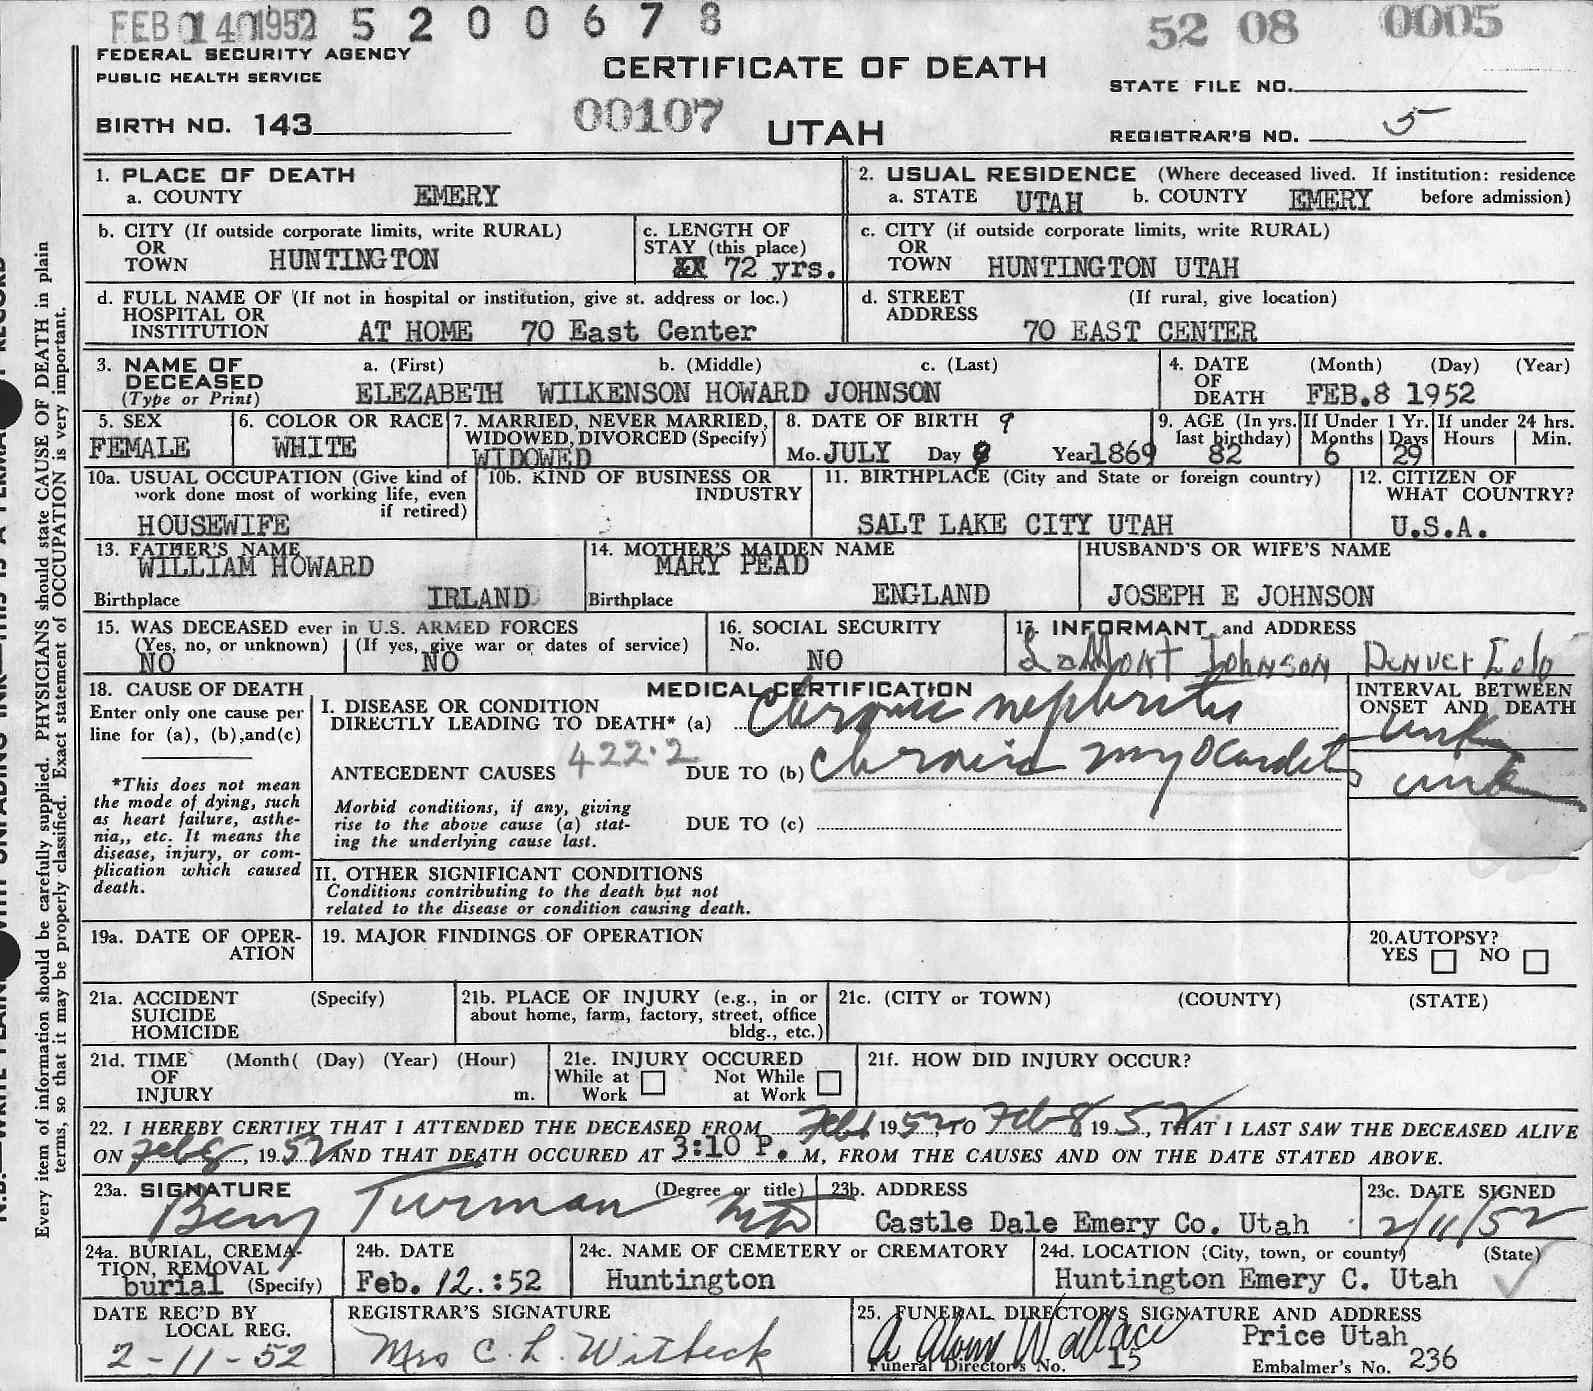 FEB 14 1952 5 2 0 0 6 7 8 52 08 0005
FEDERAL SECURITY AGENCY
PUBLIC HEALTH SERVICE
CERTIFICATE OF DEATH
STATE FILE NO.
BIRTH NO. 143 00107 UTAH
REGISTRAR'S NO. 5
Every item of information should be carefully supplied. PHYSICIANS should state CAUSE OF DEATH in plain
terms, so that it may be properly classified. Exact statement of OCCUPATION is very important.
1. PLACE OF DEATH
a. COUNTY EMERY
2. USUAL RESIDENCE (Where deceased lived. If institution: residence
a. STATE UTAH b. COUNTY EMERY before admission)
b. CITY (If outside corporate limits, write RURAL)
OR
TOWN HUNTINGTON
c. LENGTH OF
STAY (this place)
72 yrs.
c. CITY (if outside corporate limits, write RURAL)
OR
TOWN HUNTINGTON UTAH
d. FULL NAME OF (If not in hospital or institution, give st. address or loc.)
HOSPITAL OR
INSTITUTION AT HOME 70 East Center
d. STREET (If rural, give location)
ADDRESS
70 EAST CENTER
3. NAME OF a. (First) b. (Middle) c. (Last)
DECEASED
(Type or Print) ELEZABETH WILKENSON HOWARD JOHNSON
4. DATE (Month) (Day) (Year)
OF
DEATH FEB.8 1952
5. SEX
FEMALE
6. COLOR OR RACE
WHITE
7. MARRIED, NEVER MARRIED,
WIDOWED, DIVORCED (Specify)
WIDOWED
8. DATE OF BIRTH 9
Mo. JULY Day Year 1869
9. AGE (In yrs. If Under 1 Yr. If under 24 hrs.
last birthday) Months Days Hours Min.
82 6 29
10a. USUAL OCCUPATION (Give kind of
work done most of working life, even
if retired)
HOUSEWIFE
10b. KIND OF BUSINESS OR
INDUSTRY
11. BIRTHPLACE (City and State or foreign country)
SALT LAKE CITY UTAH
12. CITIZEN OF
WHAT COUNTRY?
U.S.A.
13. FATHER'S NAME
WILLIAM HOWARD
Birthplace IRLAND
14. MOTHER'S MAIDEN NAME
MARY PEAD
Birthplace ENGLAND
HUSBAND'S OR WIFE'S NAME
JOSEPH E JOHNSON
15. WAS DECEASED ever in U.S. ARMED FORCES
(Yes, no, or unknown) (If yes, give war or dates of service)
NO NO
16. SOCIAL SECURITY
No.
NO
17. INFORMANT and ADDRESS
LaMont Johnson Denver Colo
18. CAUSE OF DEATH
Enter only one cause per
line for (a), (b), and(c)
*This does not mean
the mode of dying, such
as heart failure, asthe-
nia,, etc. It means the
disease, injury, or com-
plication which caused
death.
MEDICAL CERTIFICATION
I. DISEASE OR CONDITION
DIRECTLY LEADING TO DEATH* (a) Chronic nephritis
ANTECEDENT CAUSES 422.2 DUE TO (b) chronic myocardits
Morbid conditions, if any, giving
rise to the above cause (a) stat-
ing the underlying cause last.
DUE TO (c)
INTERVAL BETWEEN
ONSET AND DEATH
unk
unk
II. OTHER SIGNIFICANT CONDITIONS
Conditions contributing to the death but not
related to the disease or condition causing death.
19a. DATE OF OPER-
ATION
19. MAJOR FINDINGS OF OPERATION
20. AUTOPSY?
YES NO
21a. ACCIDENT (Specify)
SUICIDE
HOMICIDE
21b. PLACE OF INJURY (e.g., in or
about home, farm, factory, street, office
bldg., etc.)
21c. (CITY or TOWN) (COUNTY) (STATE)
21d. TIME (Month( (Day) (Year) (Hour)
OF
INJURY m.
21e. INJURY OCCURED
While at Not While
Work at Work
21f. HOW DID INJURY OCCUR?
22. I HEREBY CERTIFY THAT I ATTENDED THE DECEASED FROM Feb 1 1952, TO Feb 8 1952, THAT I LAST SAW THE DECEASED ALIVE
ON Feb 8, 1952 AND THAT DEATH OCCURED AT 3:10 P. M, FROM THE CAUSES AND ON THE DATE STATED ABOVE.
23a. SIGNATURE (Degree or title)
Turman MD
23b. ADDRESS
Castle Dale Emery Co. Utah
23c. DATE SIGNED
2/11/52
24a. BURIAL, CREMA-
TION, REMOVAL
burial (Specify)
24b. DATE
Feb. 12.:52
24c. NAME OF CEMETERY or CREMATORY
Huntington
24d. LOCATION (City, town, or county) (State)
Huntington Emery C. Utah
DATE REC'D BY
LOCAL REG.
2-11-52
REGISTRAR'S SIGNATURE
Mrs C. L. Witbeck
25. FUNERAL DIRECTOR'S SIGNATURE AND ADDRESS
Wallace Price Utah
Funeral Director's No. 15 Embalmer's No. 236